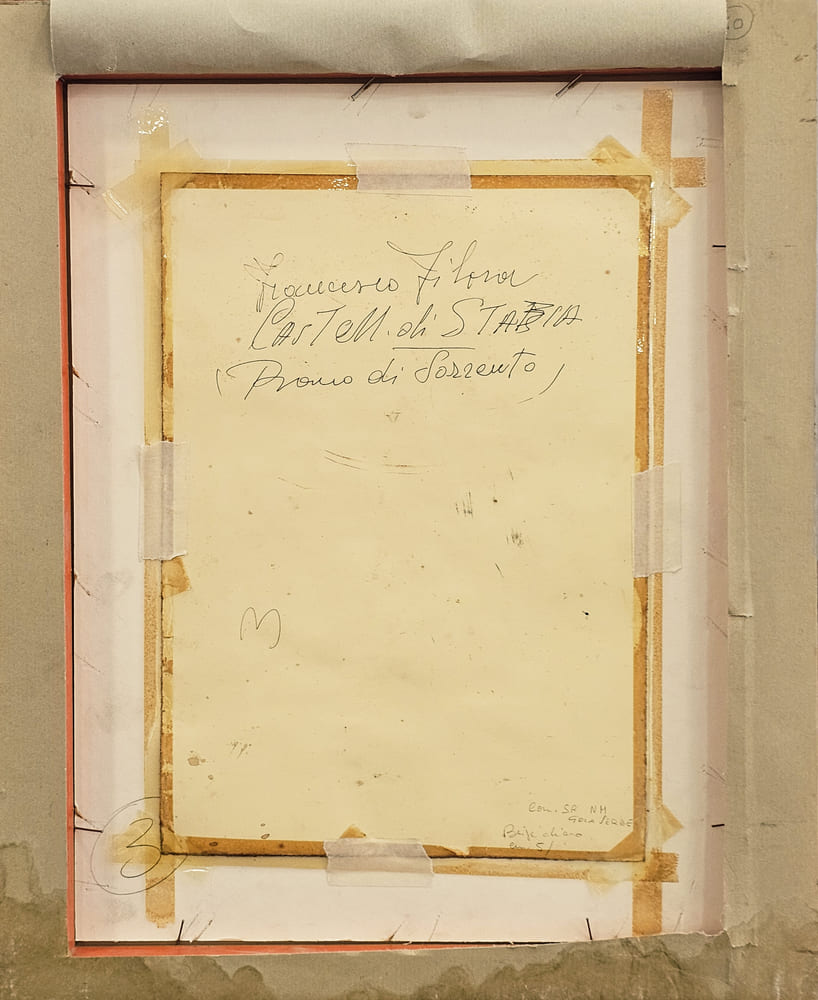 Francesco Filosa
Castell. di STABIA
(Piano di Sorrento)
3
3
Con. SR NM
GOLA VERDE
Beige chiaro
cm. 5/